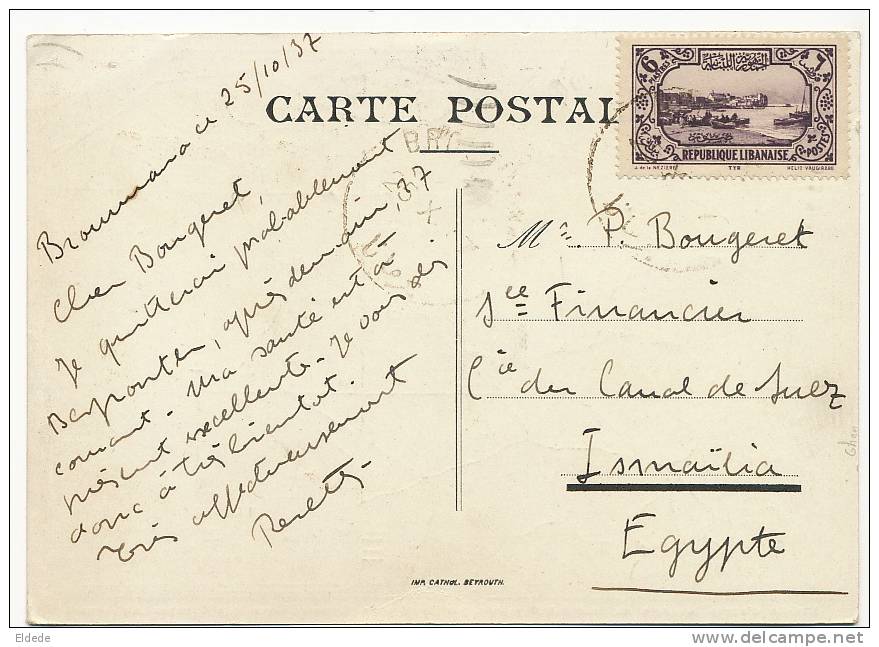 CARTE POSTAL
Broummana ce 25/10/37
Cher Bougeret,
Je quitterai probablement
Beyrouth, après demain,
courant. Ma santé est à
présent excellente. Je vous dis
donc à très bientôt.
Très affectueusement
6
PIASTRES
الجمهورية اللبنانية
٦
POSTES
REPUBLIQUE LIBANAISE
J. de la NEZIERE TYR HELIO VAUGIRARD
BRO
37
X
Mr. P. Bougeret
Sce Financier
Cie du Canal de Suez
Ismaïlia
Egypte
IMP. CATHOL. BEYROUTH.
Eldede
www.delcampe.net